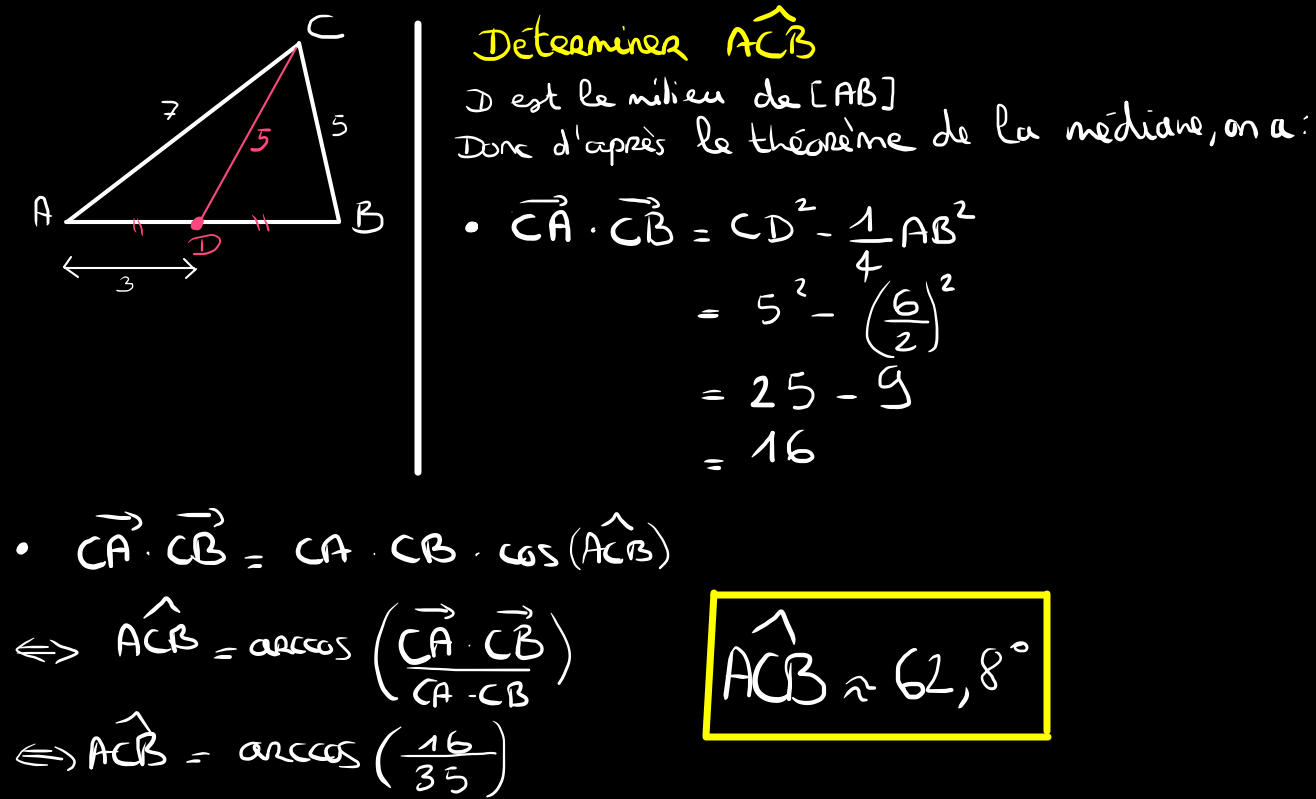 C
7
5
5
A
B
D
3
Déterminer ÂCB
D est le milieu de [AB]
Donc d'après le théorème de la médiane, on a :
• CA⃗ · CB⃗ = CD² - 1/4 AB²
= 5² - (6/2)²
= 25 - 9
= 16
• CA⃗ · CB⃗ = CA · CB · cos(ÂCB)
⟺ ÂCB = arccos (CA⃗ · CB⃗ / CA · CB)
⟺ ÂCB = arccos (16/35)
ÂCB ≈ 62,8°